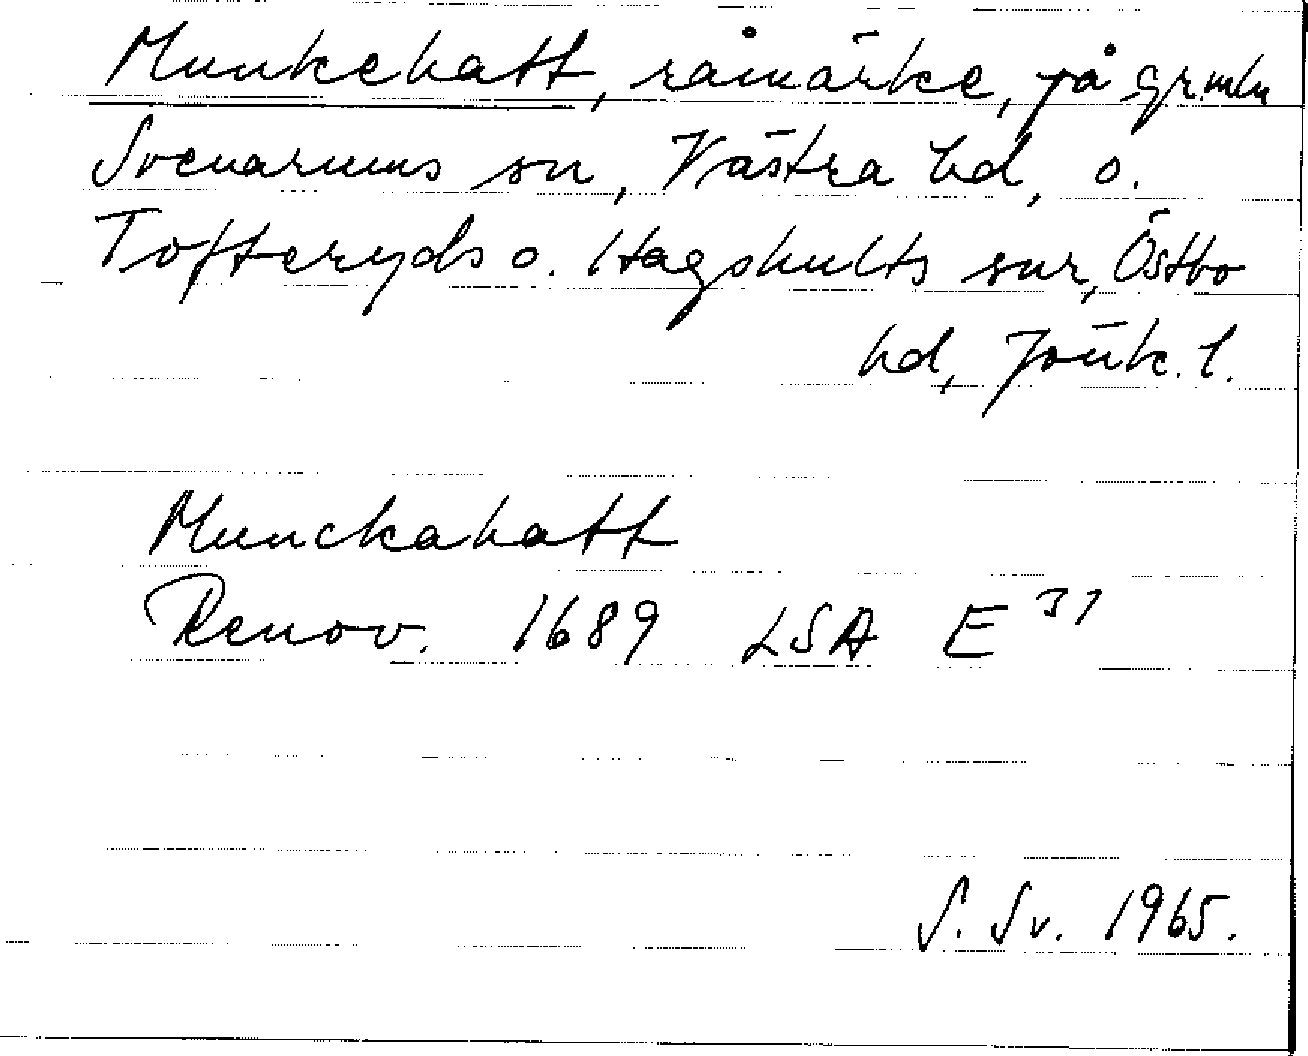 Munkehatt, råmärke, på gr.mln
Svenarums sn, Västra hd, o.
Tofteryds o. Hagshults snr, Östbo
hd, Jönk. l.
Munckahatt
Renov. 1689 LSA E 31
S. Sv. 1965.